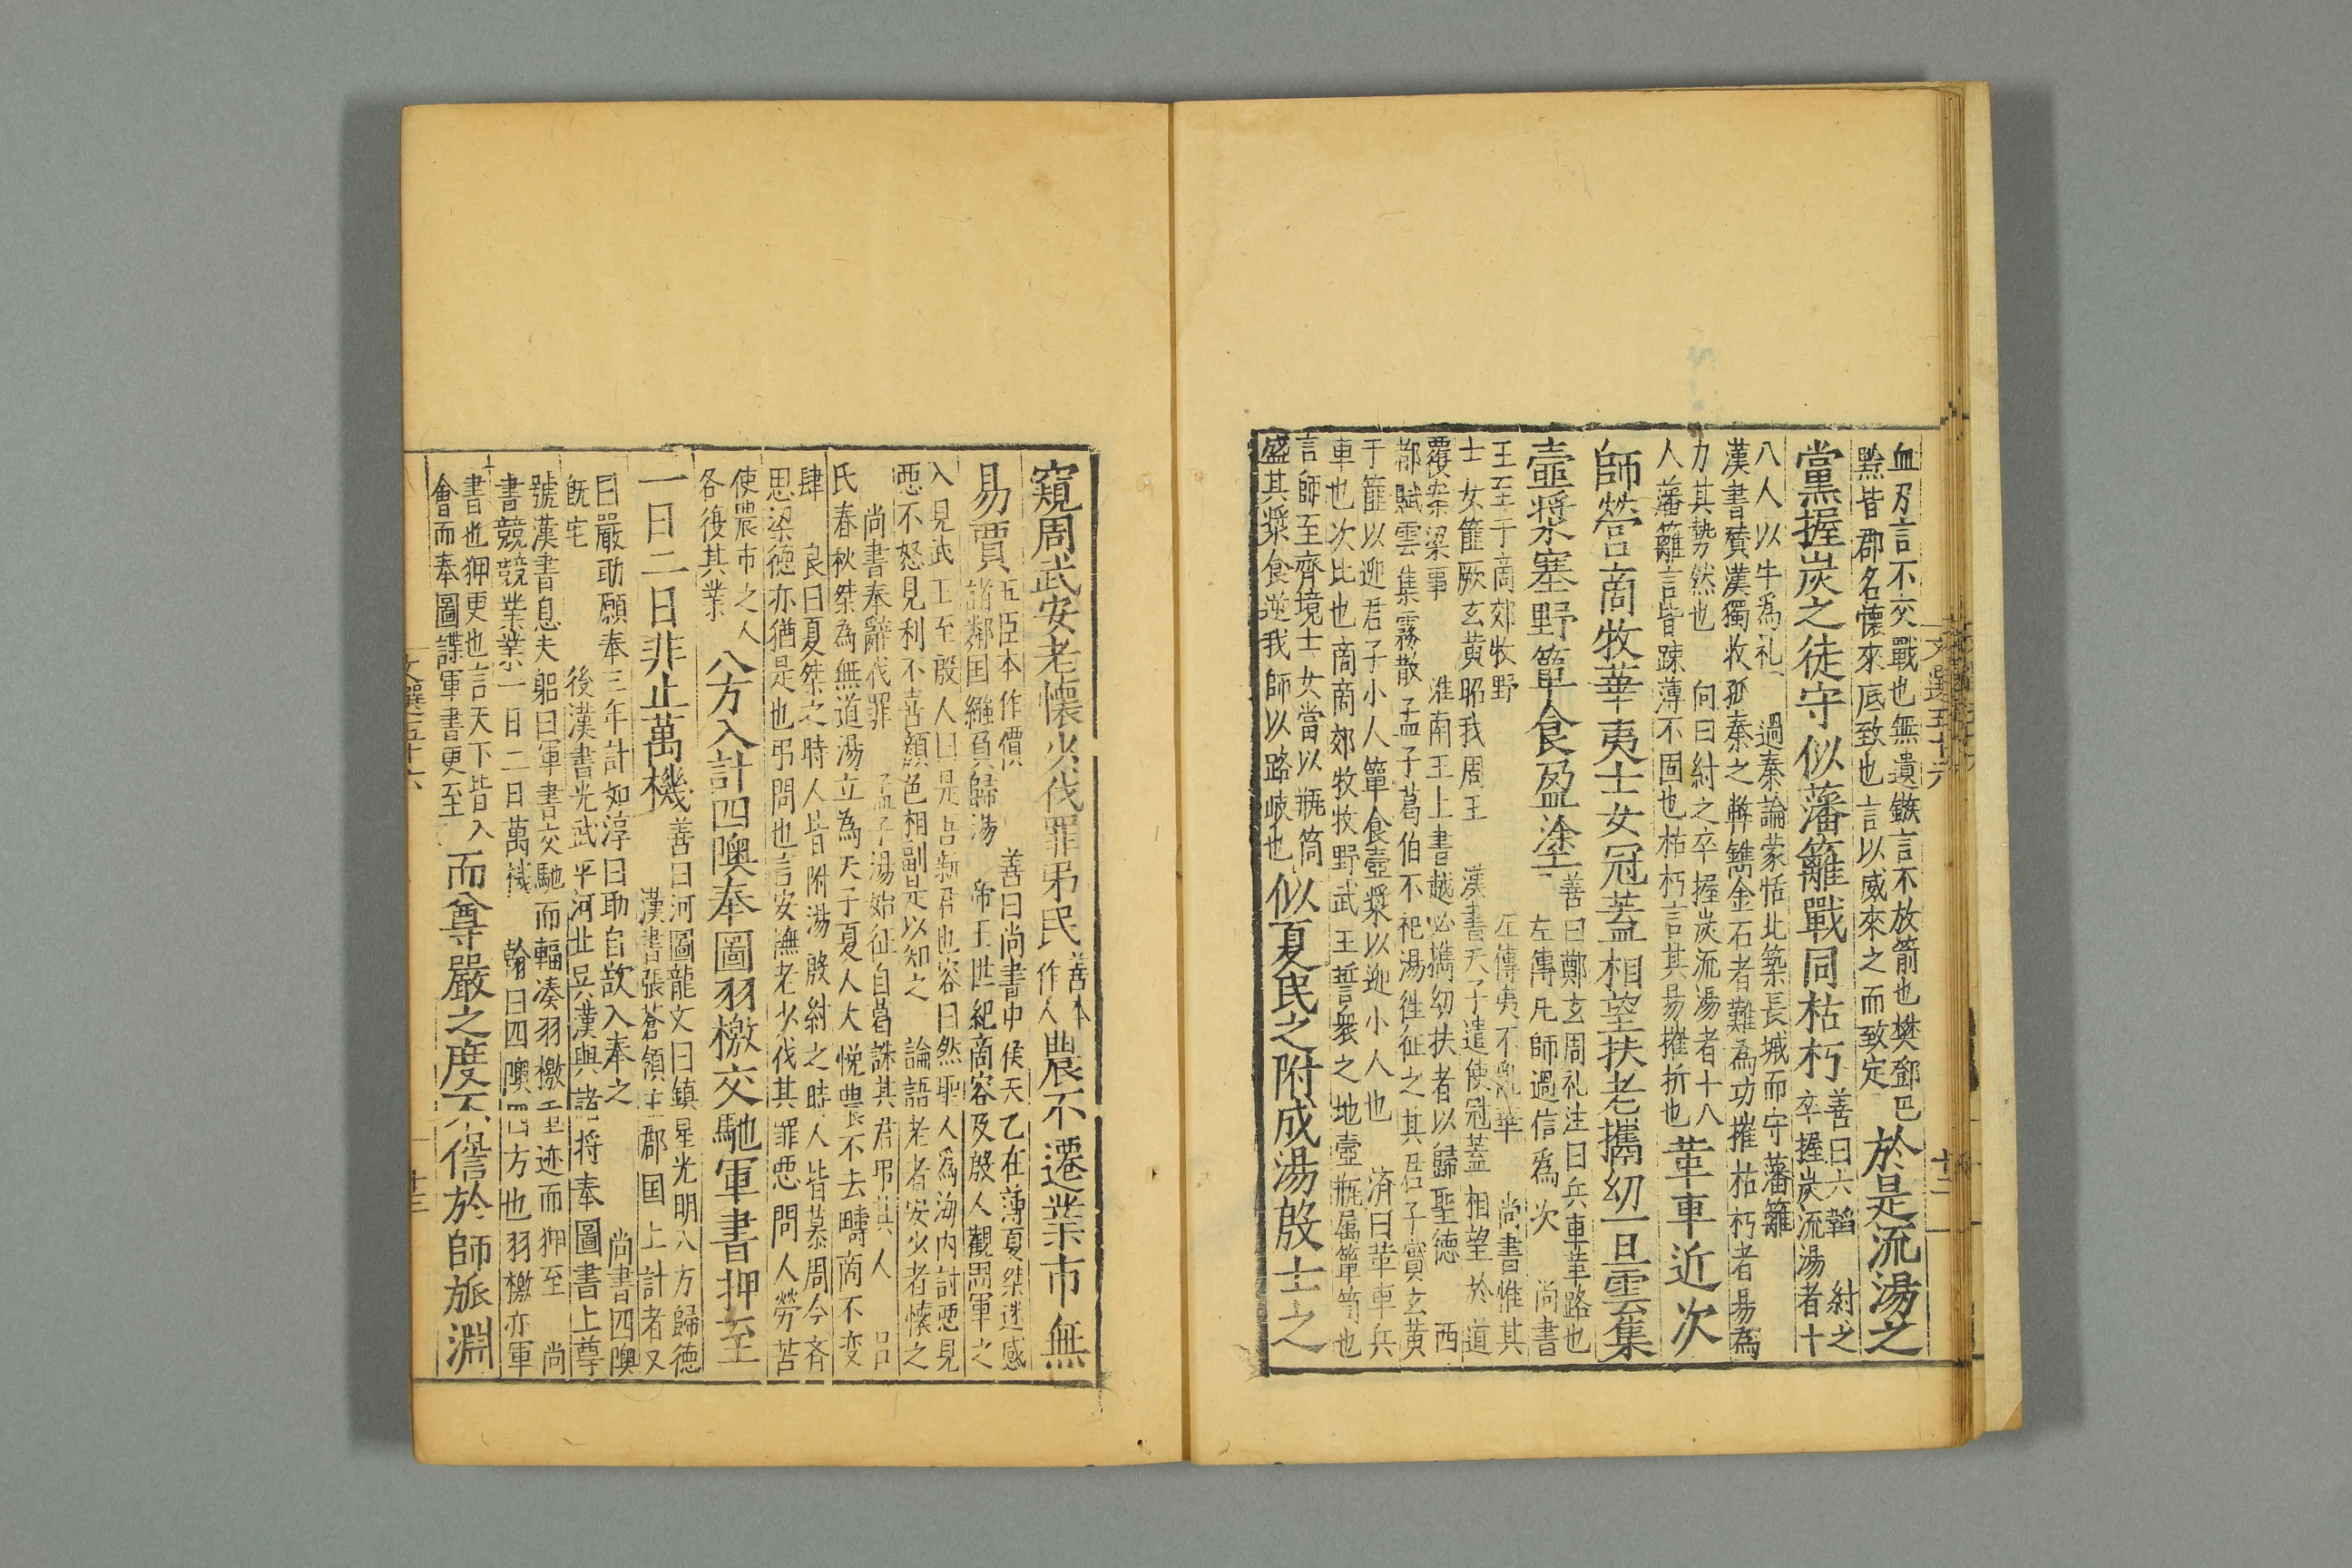 血刃言不交戰也無遺鏃言不放箭也樊鄧巴
黔皆郡名懷來底致也言以威來之而致定
於是流湯之
黨握炭之徒守似藩籬戰同枯朽
善曰六韜紂之
卒握炭流湯者十
八人以牛爲礼過秦論蒙恬北築長城而守藩籬
漢書賛漢獨收孤秦之弊鐫金石者難爲功摧枯朽者易爲
力其勢然也向曰紂之卒握炭流湯者十八
人藩籬言皆踈薄不固也枯朽言其易摧折也
革車近次
師營商牧華夷士女冠蓋相望扶老攜幼一旦雲集
壷漿塞野簞食盈塗
善曰鄭玄周礼注曰兵車革路也
左傳凡師過信爲次尚書
王至于商郊牧野左傳夷不亂華尚書惟其
士女篚厥玄黄昭我周王漢書天子遣使冠蓋相望於道
覆案梁事淮南王上書越必攜幼扶者以歸聖徳西
都賦雲集霧散孟子葛伯不祀湯徃征之其君子實玄黄
于篚以迎君子小人簞食壷漿以迎小人也済曰革車兵
車也次比也商商郊牧牧野武王誓衆之地壷瓶属簞笥也
言師至齊境士女當以瓶筒
盛其漿食逆我師以路岐也
似夏民之附成湯殷士之
窺周武安老懷少伐罪弔民
善本
作人
農不遷業市無
易賈
五臣本作價善曰尚書中候天乙在薄夏桀迷惑
諸鄰囯繦負歸湯帝王世紀商容及殷人觀周軍之
入見武王至殷人曰是吾新君也容曰然聖人爲海内討惡見
惡不怒見利不喜顔色相副是以知之論語老者安少者懷之
尚書奉辭伐罪孟子湯始征自葛誅其君弔其人吕
氏春秋桀為無道湯立為天子夏人大恱農不去疇商不变
肆良曰夏桀之時人皆附湯殷紂之時人皆慕周今斉
思梁徳亦猶是也弔問也言安撫老少伐其罪惡問人勞苦
使農市之人
各復其業
八方入計四隩奉圖羽檄交馳軍書押至
一日二日非止萬機
善曰河圖龍文曰鎮星光明八方歸徳
漢書張蒼領主郡囯上計者又
曰嚴助願奉三年計如淳曰助自欲入奉之尚書四隩
既宅後漢書光武平河北呉漢與諸将奉圖書上尊
號漢書息夫躬曰軍書交馳而輻湊羽檄重迹而狎至尚
書競競業業一日二日萬機翰曰四隩四方也羽檄亦軍
書也狎更也言天下皆入
會而奉圖諜軍書更至
而尊嚴之度不愆於師旅淵
文選五十六